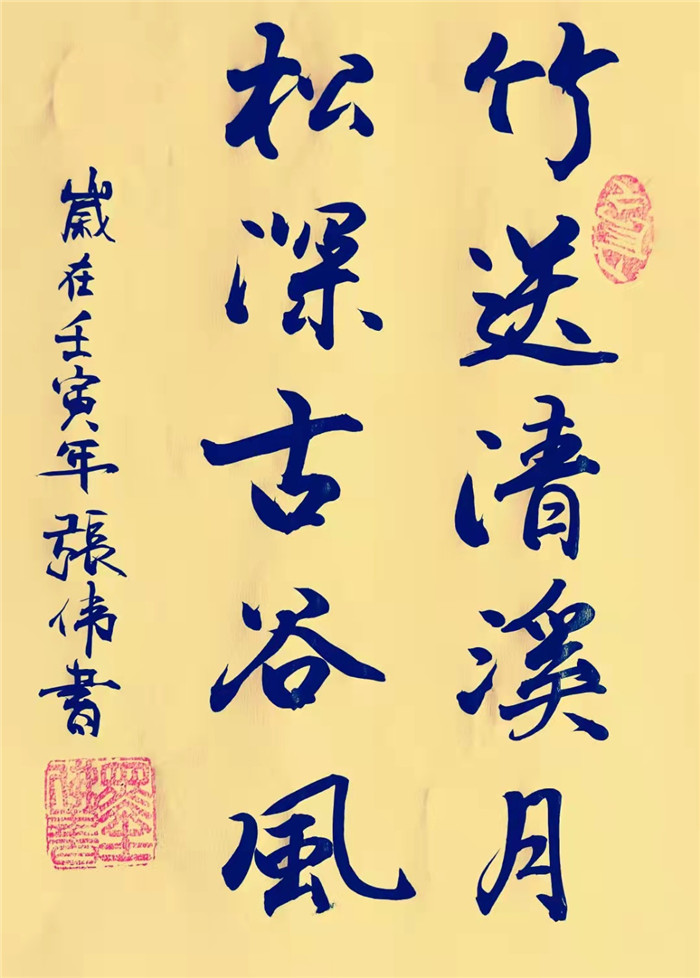 竹送清溪月
松深古谷風
歲在壬寅年張偉書